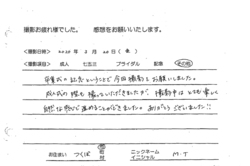 撮影お疲れ様でした。 感想をお願いいたします。
撮影日時 2020年 2月 20日(木)
撮影項目 成人 七五三 ブライダル 記念 その他
卒業式の記念ということで今回撮影をお願いしました。
成人式の時も撮っていただきましたが、撮影中はとても楽しく
自然な感じで進めることができました。ありがとうございました!!
お住まい つくば 市 町 村 ニックネーム イニシャル M・T